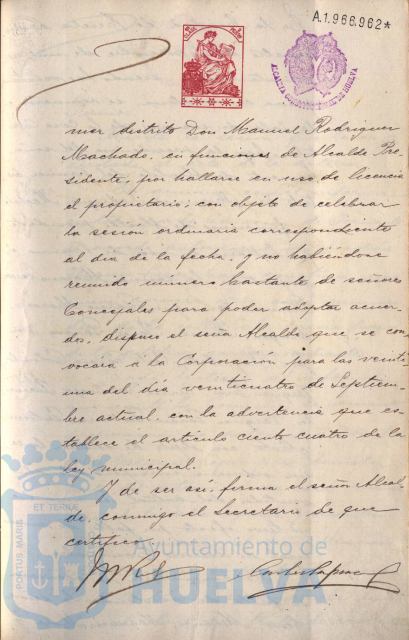 A.1.966.962*
ALCALDIA CONSTITUCIONAL DE HUELVA
mer distrito Don Manuel Rodriguez
Machado, en funciones de Alcalde Pre-
sidente, por hallarse en uso de licencia
el propietario; con objeto de celebrar
la sesión ordinaria correspondiente
al dia de la fecha, y no habiéndose
reunido número bastante de señores
Concejales para poder adoptar acuer-
dos, dispuso el señor Alcalde que se con-
vocara á la Corporación para las veinti-
una del día veinticuatro de Septiem-
bre actual, con la advertencia que es-
tablece el artículo ciento cuatro de la
Ley municipal.
Y de ser así, firma el señor Alcal-
de, conmigo el Secretario de que
certifico.
PORTUS MARIS ET TERRAE
Ayuntamiento de
HUELVA